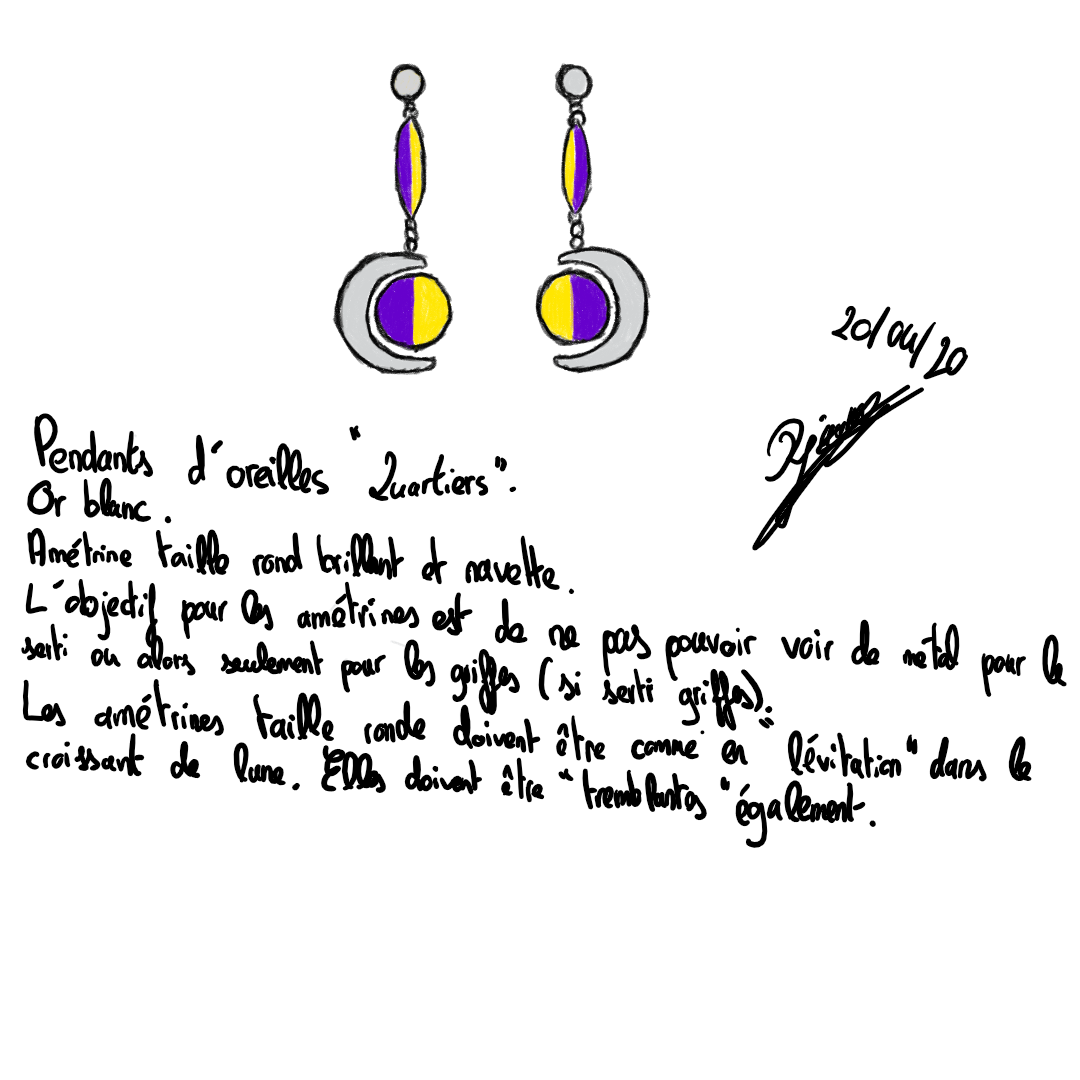 20/04/20
Pendants d'oreilles "Quartiers".
Or blanc.
Amétrine taille rond brillant et navette.
L'objectif pour les amétrines est de ne pas pouvoir voir de métal pour le
serti ou alors seulement pour les griffes (si serti griffes).
Les amétrines taille ronde doivent être comme en "lévitation" dans le
croissant de lune. Elles doivent être "tremblantes" également.